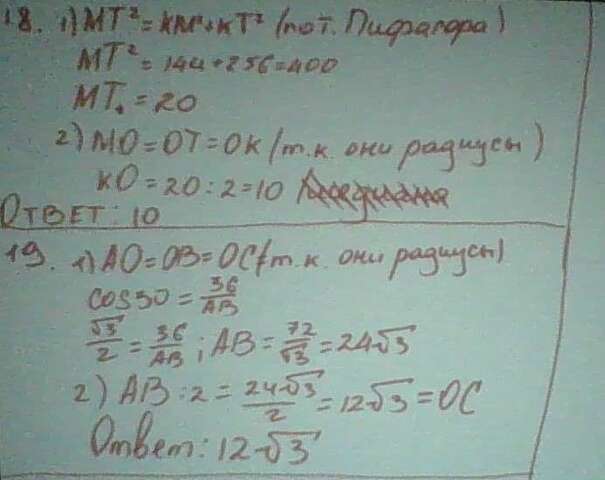 18. 1) MT² = KM² + KT² (по т. Пифагора)
MT² = 144 + 256 = 400
MT = 20
2) MO = OT = OK (т.к. они радиусы)
KO = 20 : 2 = 10
Ответ: 10
19. 1) AO = OB = OC (т.к. они радиусы)
cos30 = 36/AB
√3/2 = 36/AB ; AB = 72/√3 = 24√3
2) AB : 2 = 24√3/2 = 12√3 = OC
Ответ: 12√3